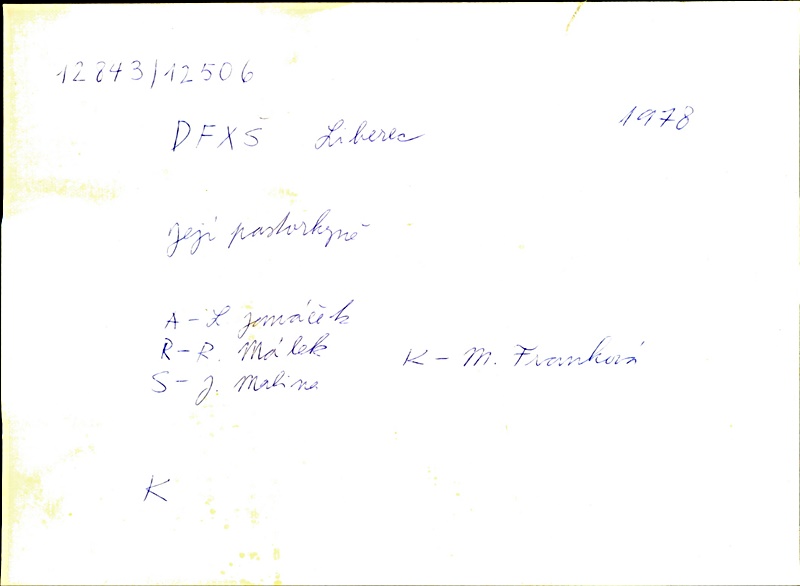 12843/12506
DFXŠ Liberec 1978
její pastorkyně
A - L Janáček
R - R. Málek K - M. Franková
S - J. Malina
K